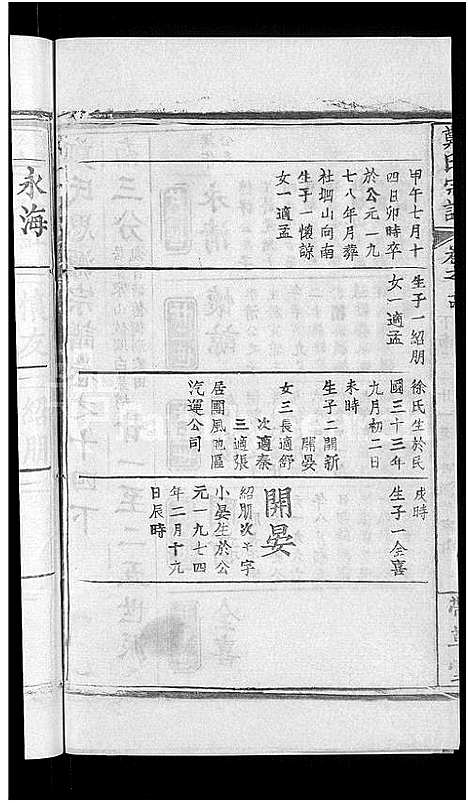 鄭氏宗譜
甲午七月十
四日卯時卒
於公元一九
七八年月葬
社堋山向南
生子一懷諒
女一適孟
生子一紹朋
女一適孟
徐氏生於民
國三十三年
九月初二日
未時
生子二開新
開晏
女三長適舒
次適秦
三適張
居團風地區
汽運公司
戌時
生子一金喜
開晏
紹朋次子字
小晏生於公
元一九七四
年二月十六
日辰時
永海